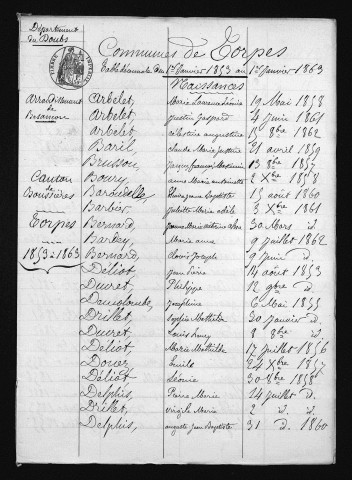 Département
du Doubs
Communes de Torpes
Table décennale du 1er Janvier 1853 au 1er Janvier 1863
Naissances
Arrondissement de Besançon
Canton de Boussières
Torpes
1853 à 1863
Arbelet, Marie 19 Mai 1858
Arbelet, Justin Gaspard 4 juin 1861
Arbelet, célestine augustine 15 8bre 1862
Baril, Claude Marie 21 avril 1859
Brusson, 13 8bre 1857
Boury, anne Marie antoinette 2 Xbre 1858
15 août 1860
Barbier, juliette Marie adèle 3 Xbre 1861
Bernard, 30 Mars d.
Barbey, Marie anne 9 juillet 1862
Bernard, Louis Joseph 9 juin d.
Déliot, jean Pierre 14 août 1853
Ducret, Philippe 12 9bre d.
Joséphine 6 Mai 1855
Drillet, Sophie Mathilde 30 janvier d.
Ducret, Louis 8 8bre d.
Déliot, Marie Mathilde 17 juillet 1856
Emile 24 Xbre 1857
Déliot, Léonie 30 1858
Delphis, Pierre Marie 24 juillet d.
Drillet, Virgile Marie 2 d. d.
Delphis, auguste Jean Baptiste 31 d. 1860